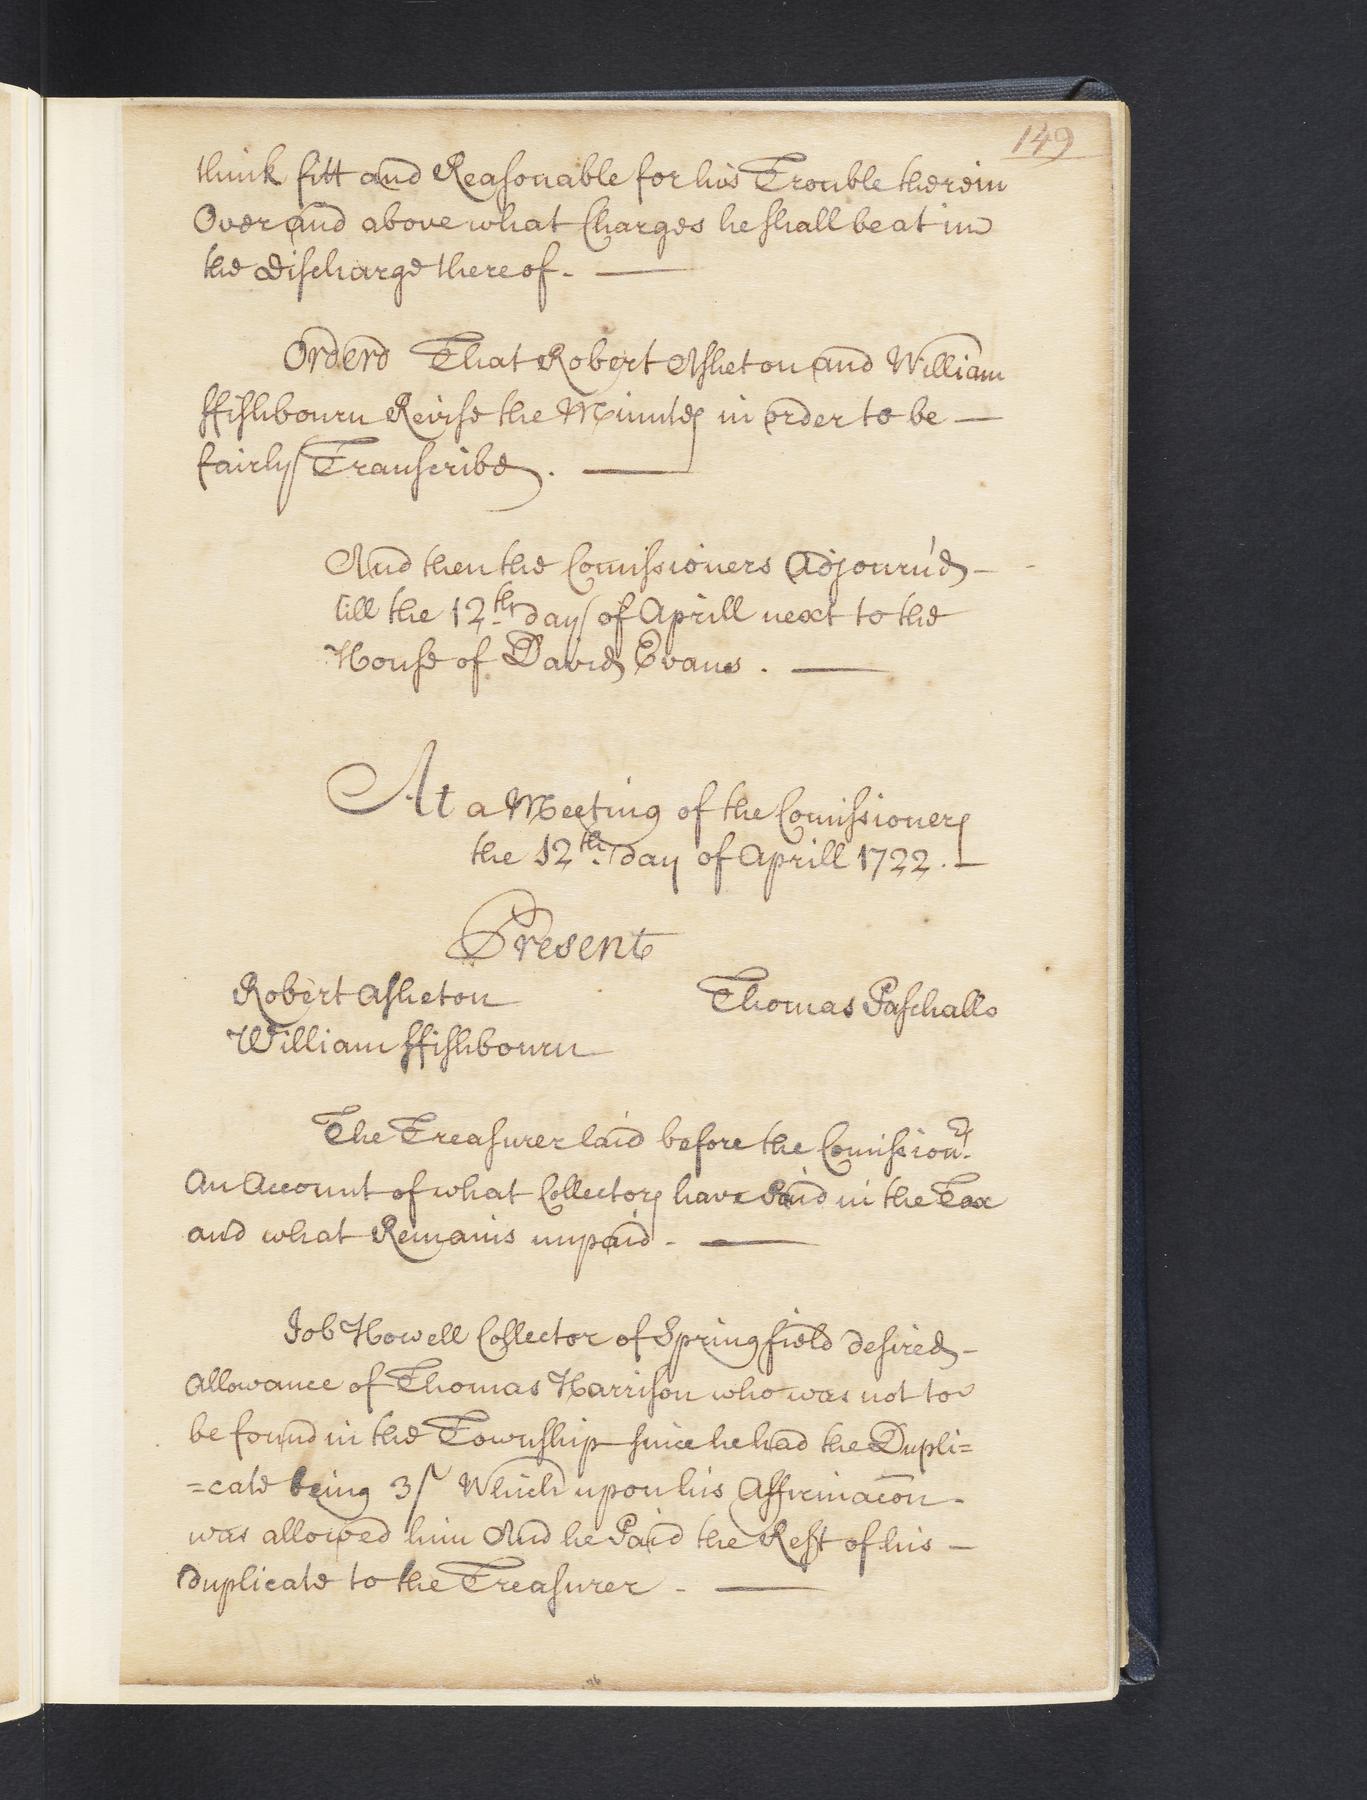 149
think fitt and Reasonable for his Trouble therein
Over and above what Charges he shall be at in
the discharge thereof. —
Orderd That Robert Asheton and William
ffishbourn Revise the Minutes in order to be —
fairly Transcribd. —
And then the Comissioners Adjourn'd —
till the 12th day of Aprill next to the
House of David Evans. —
At a Meeting of the Comissioners
the 12th day of Aprill 1722. —
Present
Robert Asheton
Thomas Paschall
William ffishbourn
The Treasurer laid before the Comissionrs
An Account of what Collectors have Paid in the Tax
and what Remains unpaid. —
Job Howell Collector of Springfield desired —
Allowance of Thomas Harrison who was not to
be found in the Township since he had the Dupli=
=cate being 3/ Which upon his Affirmacon -
was allowed him And he Paid the Rest of his —
Duplicate to the Treasurer - —